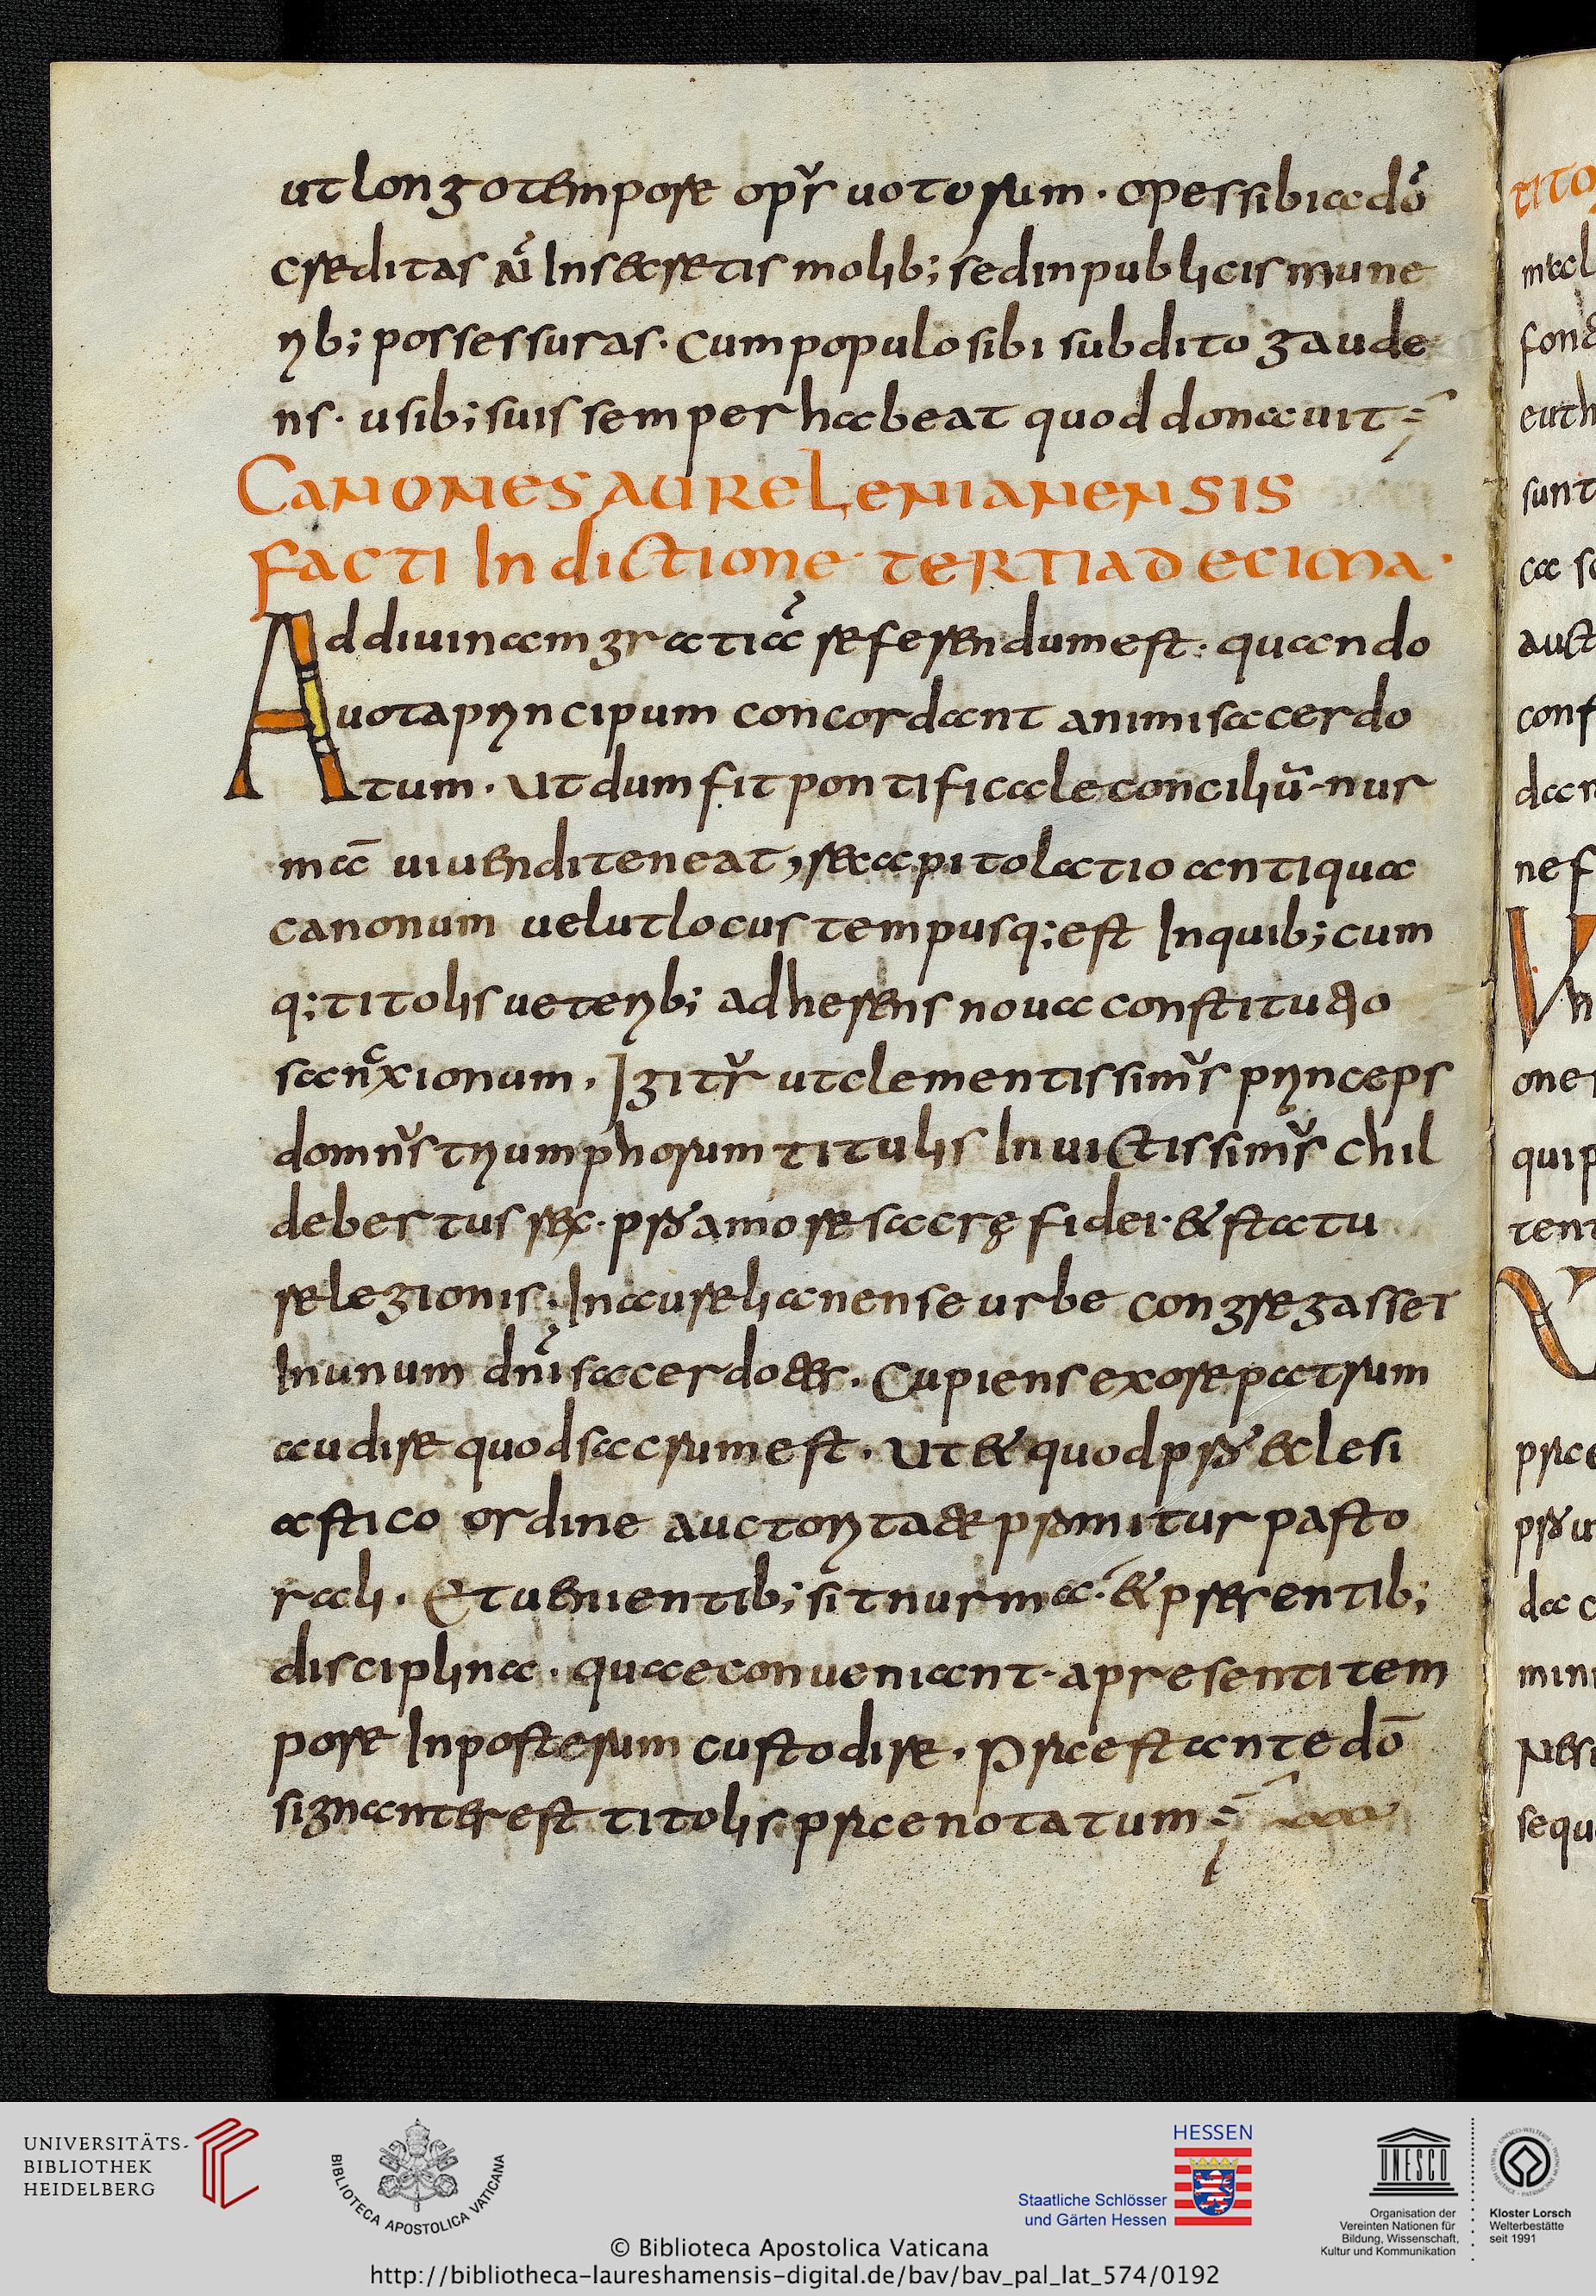 ut longo tempore opr̆ uotorum · opes sibi a dō
creditas n̄ Insecretis molib; sed in publicis mune
rib; possessuras · cum populo sibi subdito gaude
ns · usib; suis semper habeat quod donauit
CANONES AURELENIANENSIS
FACTI IN DICTIONE TERTIADECIMA ·
Ad diuinam gratiā referendum est · quando
uota principum concordant animi sacerdo
tum · Ut dum fit pontificale conciliū · nur
mā uiuendi teneat, recapitolatio antiqua
canonum uelut locus tempusq; est In quib; cum
q; titolis ueterib; adherens noua constitutio
sancxionum · Igitr̆ ut clementissim̆s princeps
domn̆s triumphorum titulis Inuictissim̆s chil
debertus rex · pro amore sacrę fidei · & statu
relegionis · In aurelianense urbe congregasset
In unum dn̄i sacerdotes · Cupiens ex ore patrum
audire quod sacrum est · Ut & quod pro eclesi
astico ordine auctoritate promitur pasto
rali · Et uenientib; sit nurma · & presentib;
disciplina · quae conueniant · a presenti tem
pore In posterum custodire · Praestante dō
signanter est titolis praenotatum
UNIVERSITÄTS-
BIBLIOTHEK
HEIDELBERG
BIBLIOTECA APOSTOLICA VATICANA
HESSEN
Staatliche Schlösser
und Gärten Hessen
UNESCO
Organisation der
Vereinten Nationen für
Bildung, Wissenschaft,
Kultur und Kommunikation
Kloster Lorsch
Welterbestätte
seit 1991
© Biblioteca Apostolica Vaticana
http://bibliotheca-laureshamensis-digital.de/bav/bav_pal_lat_574/0192